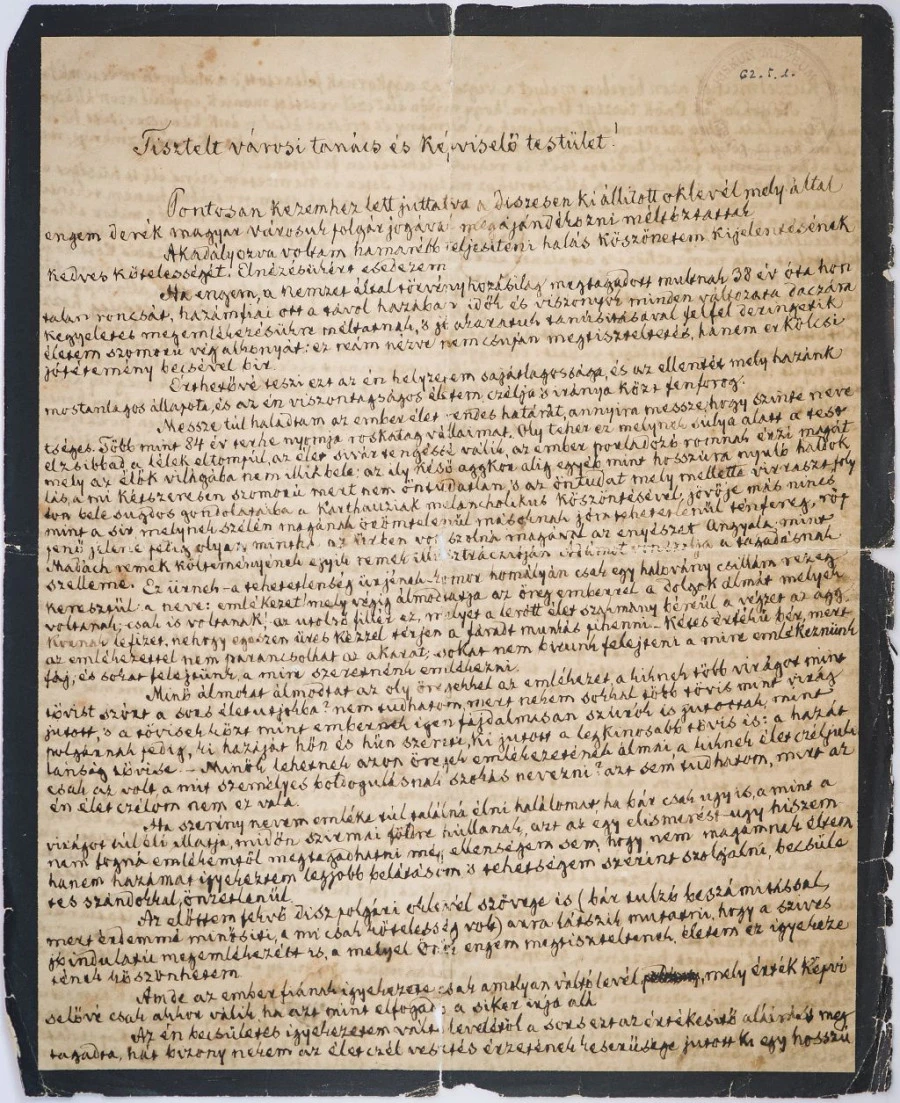 62. 5. 1.
Tisztelt városi tanács és képviselő testület!
Pontosan kezemhez lett juttatva a díszesen kiállított oklevél mely által
engem derék magyar városuk polgár jogával megajándékozni méltóztattak
Akadályozva voltam hamarébb teljesíteni hálás köszönetem kijelentésének
kedves kötelességét. Elnézésükért esedezem
Ha engem, a nemzet által törvényhozásilag megtagadott multnak 38 év óta hon
talan roncsát, hazámfiai ott a távol hazában idők és viszonyok minden változata daczára
kegyeletes megemlékezésükre méltatnak, 's jó akaratuk tanúsításával felfel deringetik
életem szomorú végalkonyát: ez reám nézve nem csupán megtiszteltetés, hanem erkölcsi
jótétemény becsével bir.
Érthetővé teszi ezt az én helyzetem sajátlagossága, és az ellentét mely hazánk
mostanlagos állapota, és az én viszontagságos életem czélja 's iránya közt fenforog.
Messze túl haladtam az ember élet rendes határát, annyira messze, hogy szinte neve
tséges. Több mint 84 év terhe nyomja roskatag vállaimat. Oly teher ez melynek súlya alatt a test
elzsibbad, a lélek eltompúl, az élet sivár tengéssé válik, az ember porladozó romnak érzi magát
mely az élők világába nem illik bele: az ily késő aggkor alig egyéb mint hosszúra nyuló haldok
lás, a mi kétszeresen szomorú mert nem öntudatlan, 's az öntudat mely mellette virraszt foly
ton bele sugdos gondolataiba a Karthauziak melancholikus köszöntésével, jövője más nincs
mint a sír, melynek szélén magának örömtelenül másoknak tehetetlenül tenfereg, röp
jenő jelene pedig olyan mintha az űrben vonszolná magánál az enyészet Angyala, mint
Madách remek költeményének egyik remek illusztráczióján a tagadásnak
szelleme. Ez űrnek – a tehetetlenség űrjének – komor homályán csak egy halovány csillám rezeg
keresztül: a neve: emlékezet! mely végig álmodtatja az öreg emberrel a dolgok álmát melyek
voltanak; csak is voltanak; az utolsó fillér ez, melyet a lerótt élet szolgmány béréül a végzet az agg
kornak lefizet, nehogy egészen üres kézzel térjen a fáradt munkás pihenni. – Kétes értékű bér, mert
az emlékezettel nem parancsolhat az akarat; sokat nem birunk felejteni a mire emlékeznünk
fáj, és sokat felejtünk, a mire szeretnénk emlékezni.
Minő álmokat álmodtat az oly öregekkel az emlékezet, a kiknek több virágot mint
tövist szórt a sors életutjokba? nem tudhatom, mert nekem sokkal több tövis mint virág
jutott, 's a tövisek közt mint embernek igen fájdalmasan szúrók is jutottak, mint
polgárnak pedig, ki hazáját hőn és hűn szereti, ki jutott a legkínosabb tövis is: a hazát
lanság tövise – Minők lehetnek azon öregek emlékezetének álmai a kiknek életczéljuk
csak az volt, a mit személyes boldogulásnak szokás nevezni? azt sem tudhatom, mert az
én életczélom nem ez vala.
Ha szerény nevem emléke túl találná élni halálomat ha bár csak ugy is, a mint a
virágot túl éli illatja, midőn szirmai földre hullanak, azt az egy elismerést ugy hiszem
nem fogná emlékemtől megtagadhatni még ellenségem sem, hogy nem magamnak éltem
hanem hazámat igyekeztem legjobb belátásom 's tehetségem szerint szolgálni, becsüle
tes szándokkal, önzetlenül.
Az előttem fekvő disz polgári oklevél szövege is (bár tulzó beszámitással,
mert érdemmé minősiti, a mi csak kötelesség volt) arra látszik mutatni, hogy a szives
jó indulatu megemlékezést is, a melyel Önök engem megtiszteltenek, életem ez igyekeze
tének köszönhetem
Ámde az ember fiának igyekezete csak amolyan váltó levél, mely érték képvi
selővé csak akkor válik, ha azt mint elfogadó a siker irja alá
Az én becsületes igyekezetem váltó levelétől a sors ezt az értékesitő aláirást meg
tagadta, hát bizony nekem az életczél vesztés érzetének keserűsége jutott ki egy hosszú